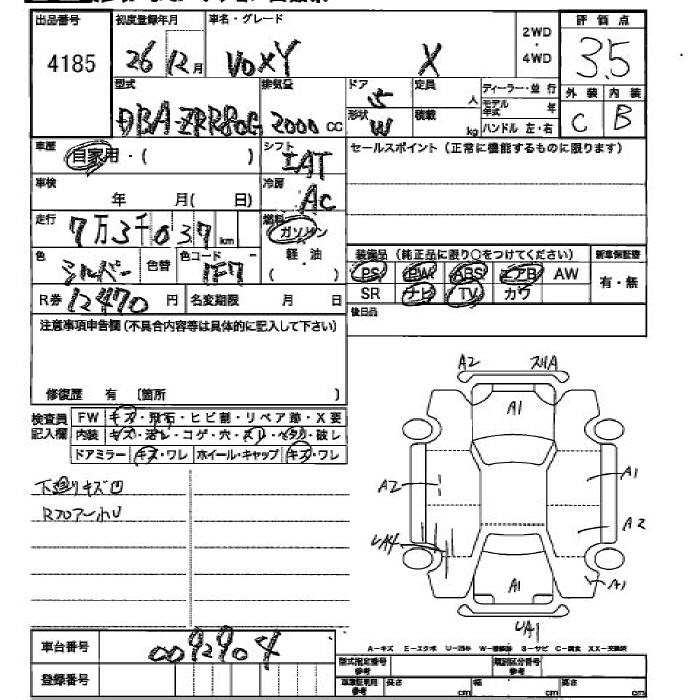 出品番号
4185
初度登録年月
26 12月
車名・グレード
VOXY X
2WD
・
4WD
評価点
3.5
外装 内装
C B
型式
DBA-ZRR80G
排気量
2000 cc
ドア
5
形状
W
定員
人
積載
kg
ディーラー・並行
モデル年式 年
ハンドル 左・右
車歴
自家用・( )
シフト
IAT
セールスポイント (正常に機能するものに限ります)
車検
年 月( 日)
冷房
AC
走行
7万3千037 km
燃料
ガソリン
軽油
( )
色
シルバー
色替
色コード
1F7
装備品 (純正品に限り○をつけてください)
新車保証書
PS PW ABS エアB AW
有・無
SR ナビ TV カワ
R券 12470 円
名変期限 月 日
後日品
注意事項申告欄 (不具合内容等は具体的に記入して下さい)
修復歴 有 〔箇所 〕
検査員
記入欄
FW キズ・飛石・ヒビ割・リペア跡・X要
内装 キズ・汚レ・コゲ・穴・スレ・ヘタリ・破レ
ドアミラー キズ・ワレ ホイール・キャップ キズ・ワレ
下廻りキズ凹
Rフロアー小U
A2 スリA
A1
A2
A1
A2
UA4
A1
A1
UA1
車台番号
0092904
登録番号
A-キズ E-エクボ U-凹み W-補修跡 S-サビ C-腐食 XX-交換済
型式指定番号
参考
類別区分番号
参考
車庫証明用
参考
長さ cm
幅 cm
高さ cm